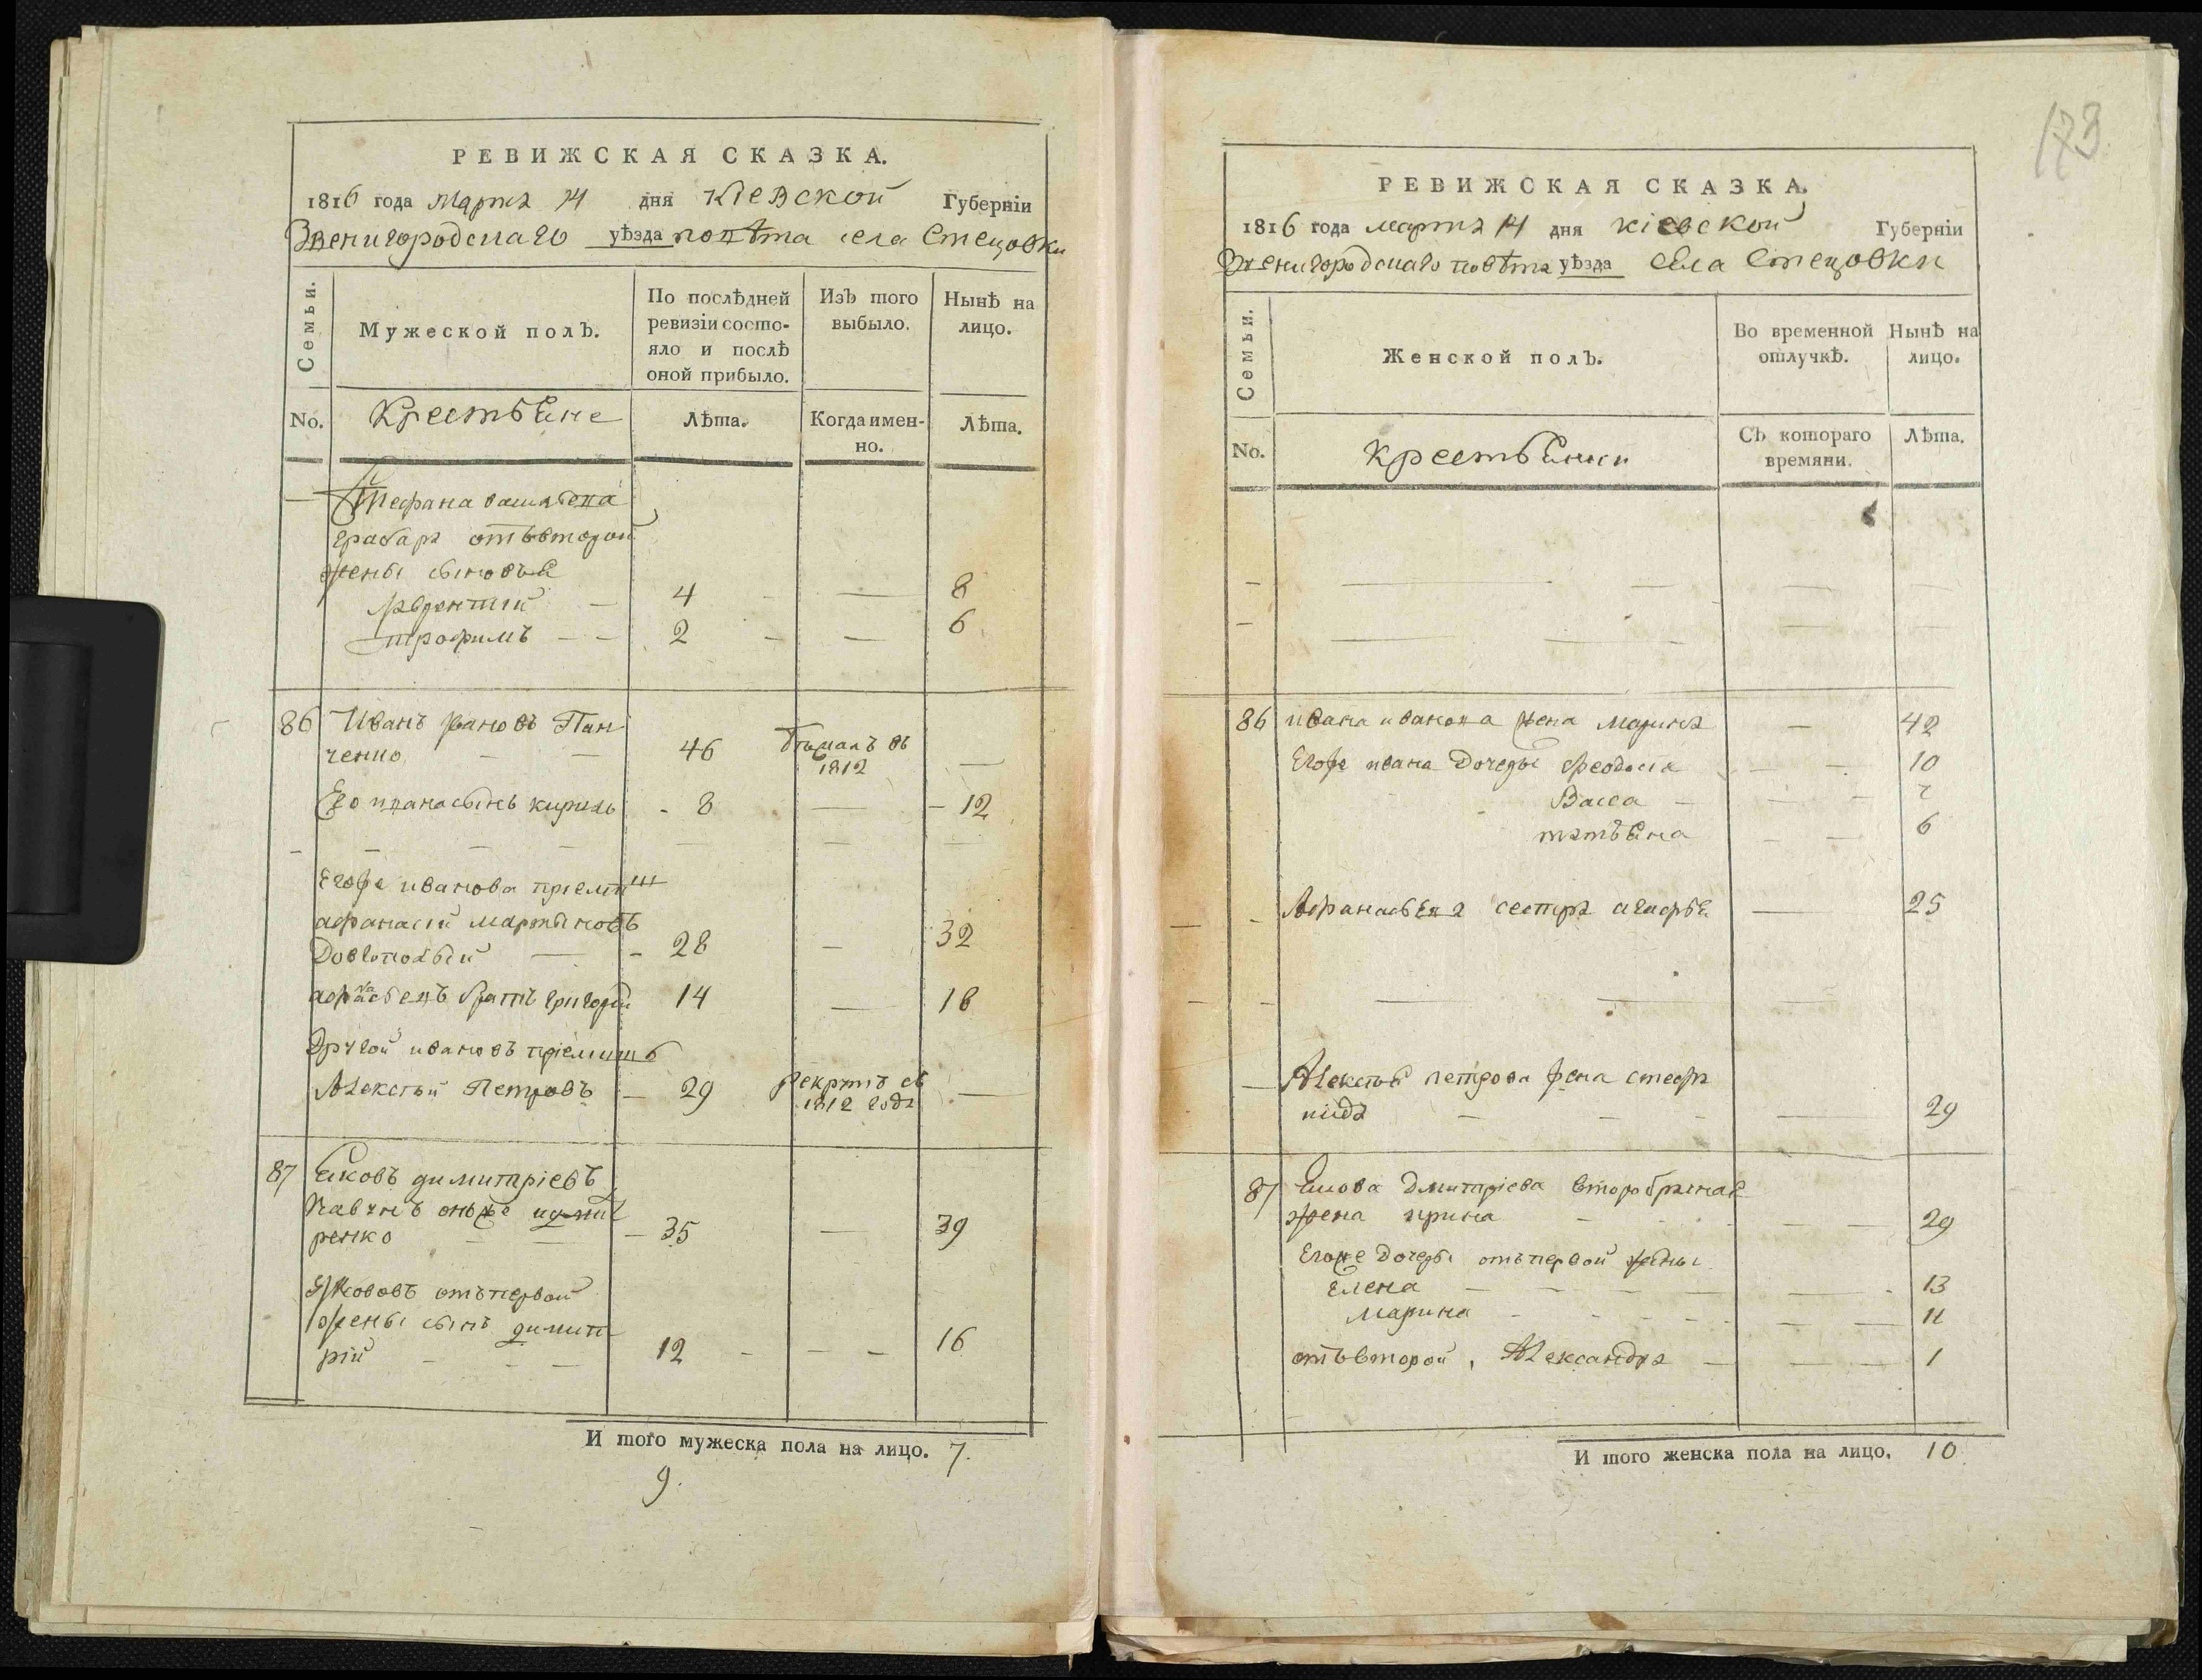 РЕВИЖСКАЯ СКАЗКА.
1816 года марта 14 дня Кіевской Губерніи
Звенигородскаго уѣзда повѣта села Стецовки
Семьи.
Мужеской полъ.
По послѣдней
ревизіи состо-
яло и послѣ
оной прибыло.
Изъ того
выбыло.
Нынѣ на
лицо.
No.
Крестьяне
Лѣта.
Когда имен-
но.
Лѣта.
Стефана васильева
грабара отъ второй
жены сыновья
Лаврентій 4 8
трофимъ 2 6
86 Иванъ Ивановъ Пан
ченко 46 1812
Его ивана сынъ кирилъ 8 12
Егоже иванова пріемыш
афанасій мартыновъ
Довгополый 28 32
афанасьевъ братъ григорій 14 18
Другой ивановъ пріемышъ
Алексѣй Петровъ 29 рекрутъ въ
1812 года
87 Яковъ димитріевъ
Кавунъ онъже
ренко 35 39
Якововъ отъ первой
жены сынъ димит
рій 12 16
И того мужеска пола на лицо. 7.
9.
173
РЕВИЖСКАЯ СКАЗКА.
1816 года марта 14 дня кіевской Губерніи
Звенигородскаго повѣта уѣзда села Стецовки
Семьи.
Женской полъ.
Во временной
отлучкѣ.
Нынѣ на
лицо.
No.
крестьянки
Съ котораго
времяни.
Лѣта.
86 ивана иванова жена марина 42
Егоже ивана дочери феодосія 10
Васса 7
татьяна 6
Афанасьева сестра агафья 25
Алексѣя петрова жена стефа
нида 29
87 Якова Дмитріева второбрачная
жена ирина 29
Егоже дочери отъ первой жены
Елена 13
марина 11
отъ второй, Александра 1
И того женска пола на лицо. 10